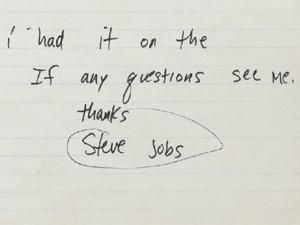 i had it on the
If any questions see me.
thanks
Steve Jobs